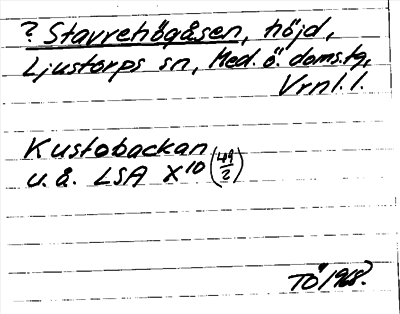 ? Stavrehögåsen, höjd,
Ljustorps sn, Med. ö. doms.tg,
Vrnl. l.
Kustobackan
u. å. LSA X10 (49/2)
TÖ 1968.